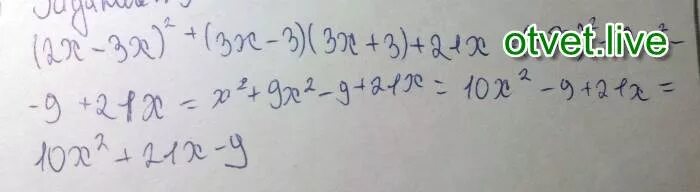 Задание
(2x-3x)² + (3x-3)(3x+3)+21x
otvet.live
-9+21x = x²+9x²-9+21x = 10x²-9+21x =
10x²+21x-9